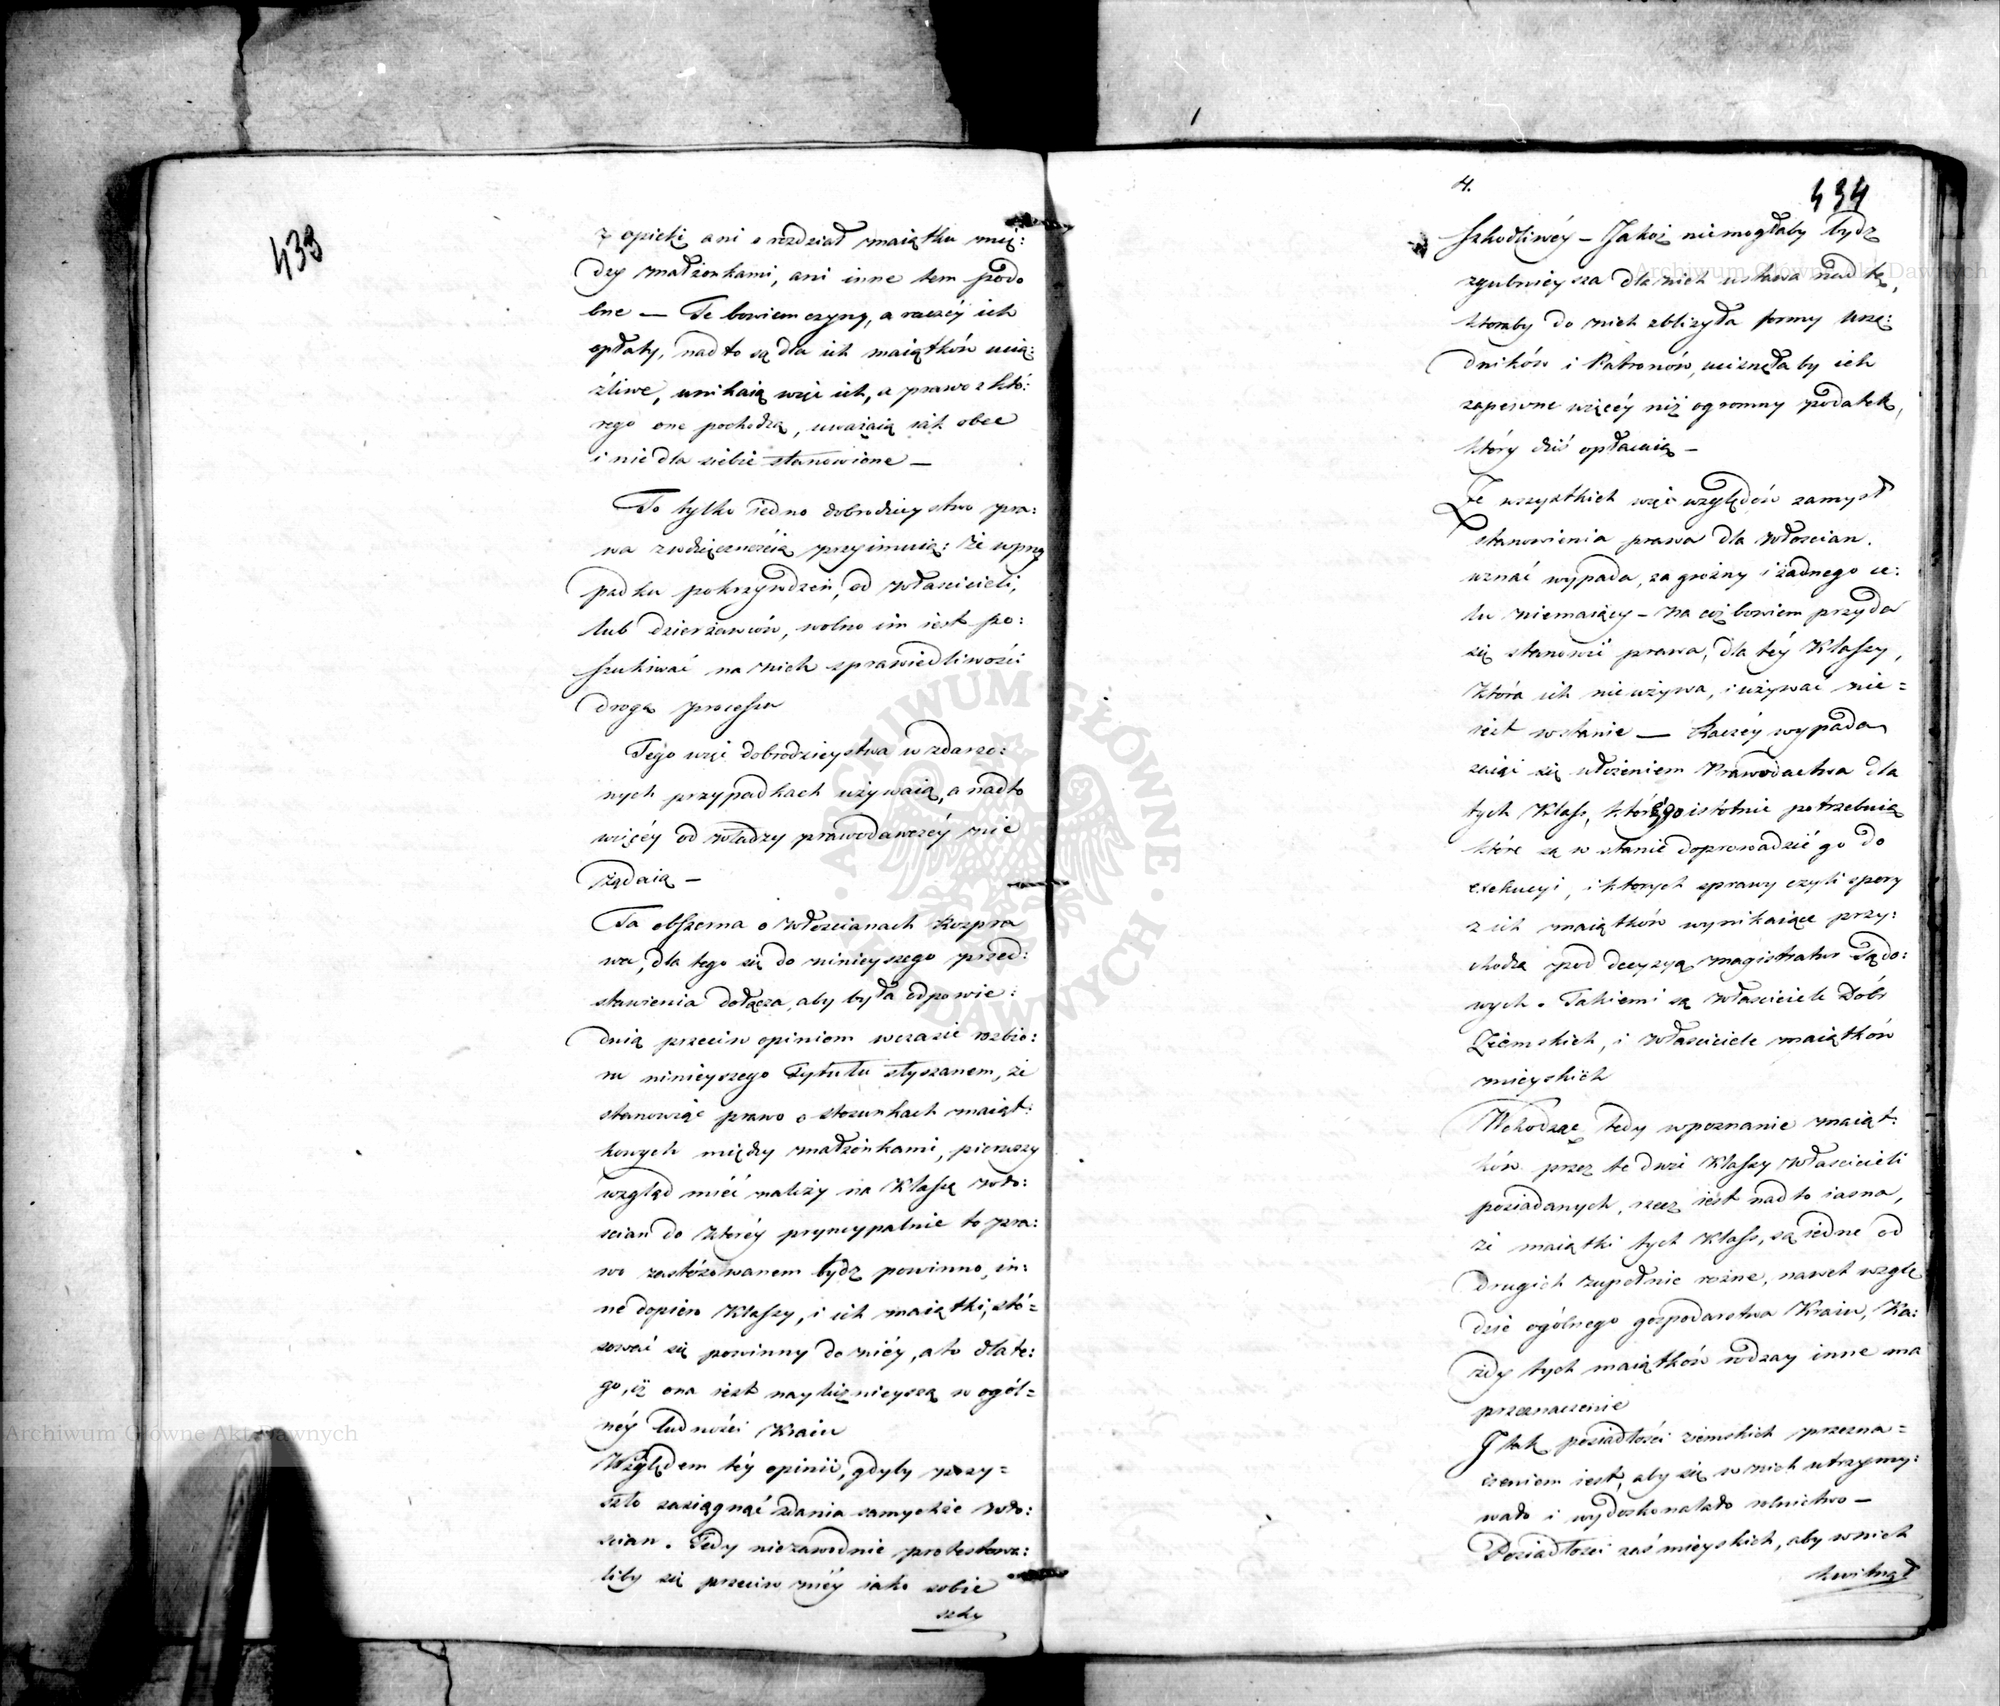 433
z opieki ani o rozdział maiątku mię:
dzy małżonkami, ani inne tem podo
bne — Te bowiem czyny, a raczéy ich
opłaty, nadto są dla ich maiątków ucią:
żliwe, unikaią więc ich, a prawo z któ:
rego one pochodzą, uważaią iak obce
i nie dla siebie stanowione —
To tylko iedno dobrodzieystwo pra:
wa z wdzięcznością przyimuią: że w przy
padku pokrzywdzeń, od właścicieli,
lub dzierżawców, wolno im iest po:
szukiwać na nich sprawiedliwości
drogą processu
Tego więc dobrodzieystwa w zdarzo:
nych przypadkach używaią, a nadto
więcéy od władzy prawodawczéy nie
żądaią —
Ta obszerna o włościanach rozpra
wa, dla tego się do ninieyszego przed:
stawienia dołącza, aby była odpowie:
dnią przeciw opiniom w czasie rozbio:
ru ninieyszego Tytułu słyszanem, że
stanowiąc prawo o stosunkach maiąt:
kowych między małżonkami, pierwszy
wzgląd mieć należy na Klassę wło:
scian do któréy pryncypalnie to pra:
wo zastósowanem bydz powinno, in:
ne dopiero Klassy, i ich maiątki, stó=
sować się powinny do niéy, a to dla te:
go, iż ona iest naylicznieyszą w ogól=
néy ludności Kraiu
Względem téy opinii, gdyby przy=
szło zasiągnąć zdania samychże wło:
scian. Tedy niezawodnie protestowa:
liby się przeciw niéy iako sobie
szko
4.
434
szkodliwéy — Jakoż niemogłaby bydz
zgubnieysza dla nich ustawa nad tę,
któraby do nich zbliżyła formy Urzę:
dników i Patronów, ucisnęłaby ich
zapewne więcéy niż ogromny podatek,
który dziś opłacaią —
Ze wszystkich więc względów zamysł
stanowienia prawa dla włoscian.
uznać wypada, za groźny i żadnego ce:
lu niemaiący — Na cóż bowiem przyda
się stanowić prawa, dla téy Klassy,
która ich nieużywa, i używać nie=
iest w stanie — Raczéy wypada
zaiąć się ułożeniem Prawodactwa dla
tych Klass, którego istotnie potrzebuią
które są w stanie doprowadzić go do
exekucyi, i których sprawy czyli spory
z ich maiątków wynikaiące przy:
chodzą pod decyzyą magistratur Sądo:
wych. Takiemi są właściciele Dóbr
Ziemskich, i właściciele maiątków
mieyskich
Wchodząc tedy w poznanie maiąt:
ków przez te dwie Klassy właścicieli
posiadanych, rzecz iest nadto iasna,
że maiątki tych Klass, są iedne od
drugich zupełnie różne, nawet wzglę
dzie ogólnego gospodarstwa Kraiu, Ka:
żdy tych maiątków rodzay inne ma
przeznaczenie
I tak posiadłości ziemskich przezna=
czeniem iest, aby się w nich utrzymy:
wało i wydoskonalało rolnictwo —
Posiadłości zaś mieyskich, aby w nich
kwitnął